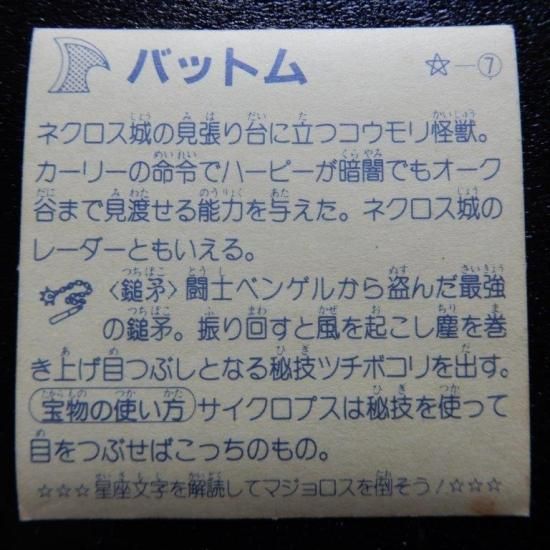 バットム ☆—⑦
ネクロス城の見張り台に立つコウモリ怪獣。
カーリーの命令でハーピーが暗闇でもオーク
谷まで見渡せる能力を与えた。ネクロス城の
レーダーともいえる。
〈鎚矛〉闘士ベンゲルから盗んだ最強
の鎚矛。振り回すと風を起こし塵を巻
き上げ目つぶしとなる秘技ツチボコリを出す。
宝物の使い方 サイクロプスは秘技を使って
目をつぶせばこっちのもの。
☆☆☆星座文字を解読してマジョロスを倒そう！☆☆☆